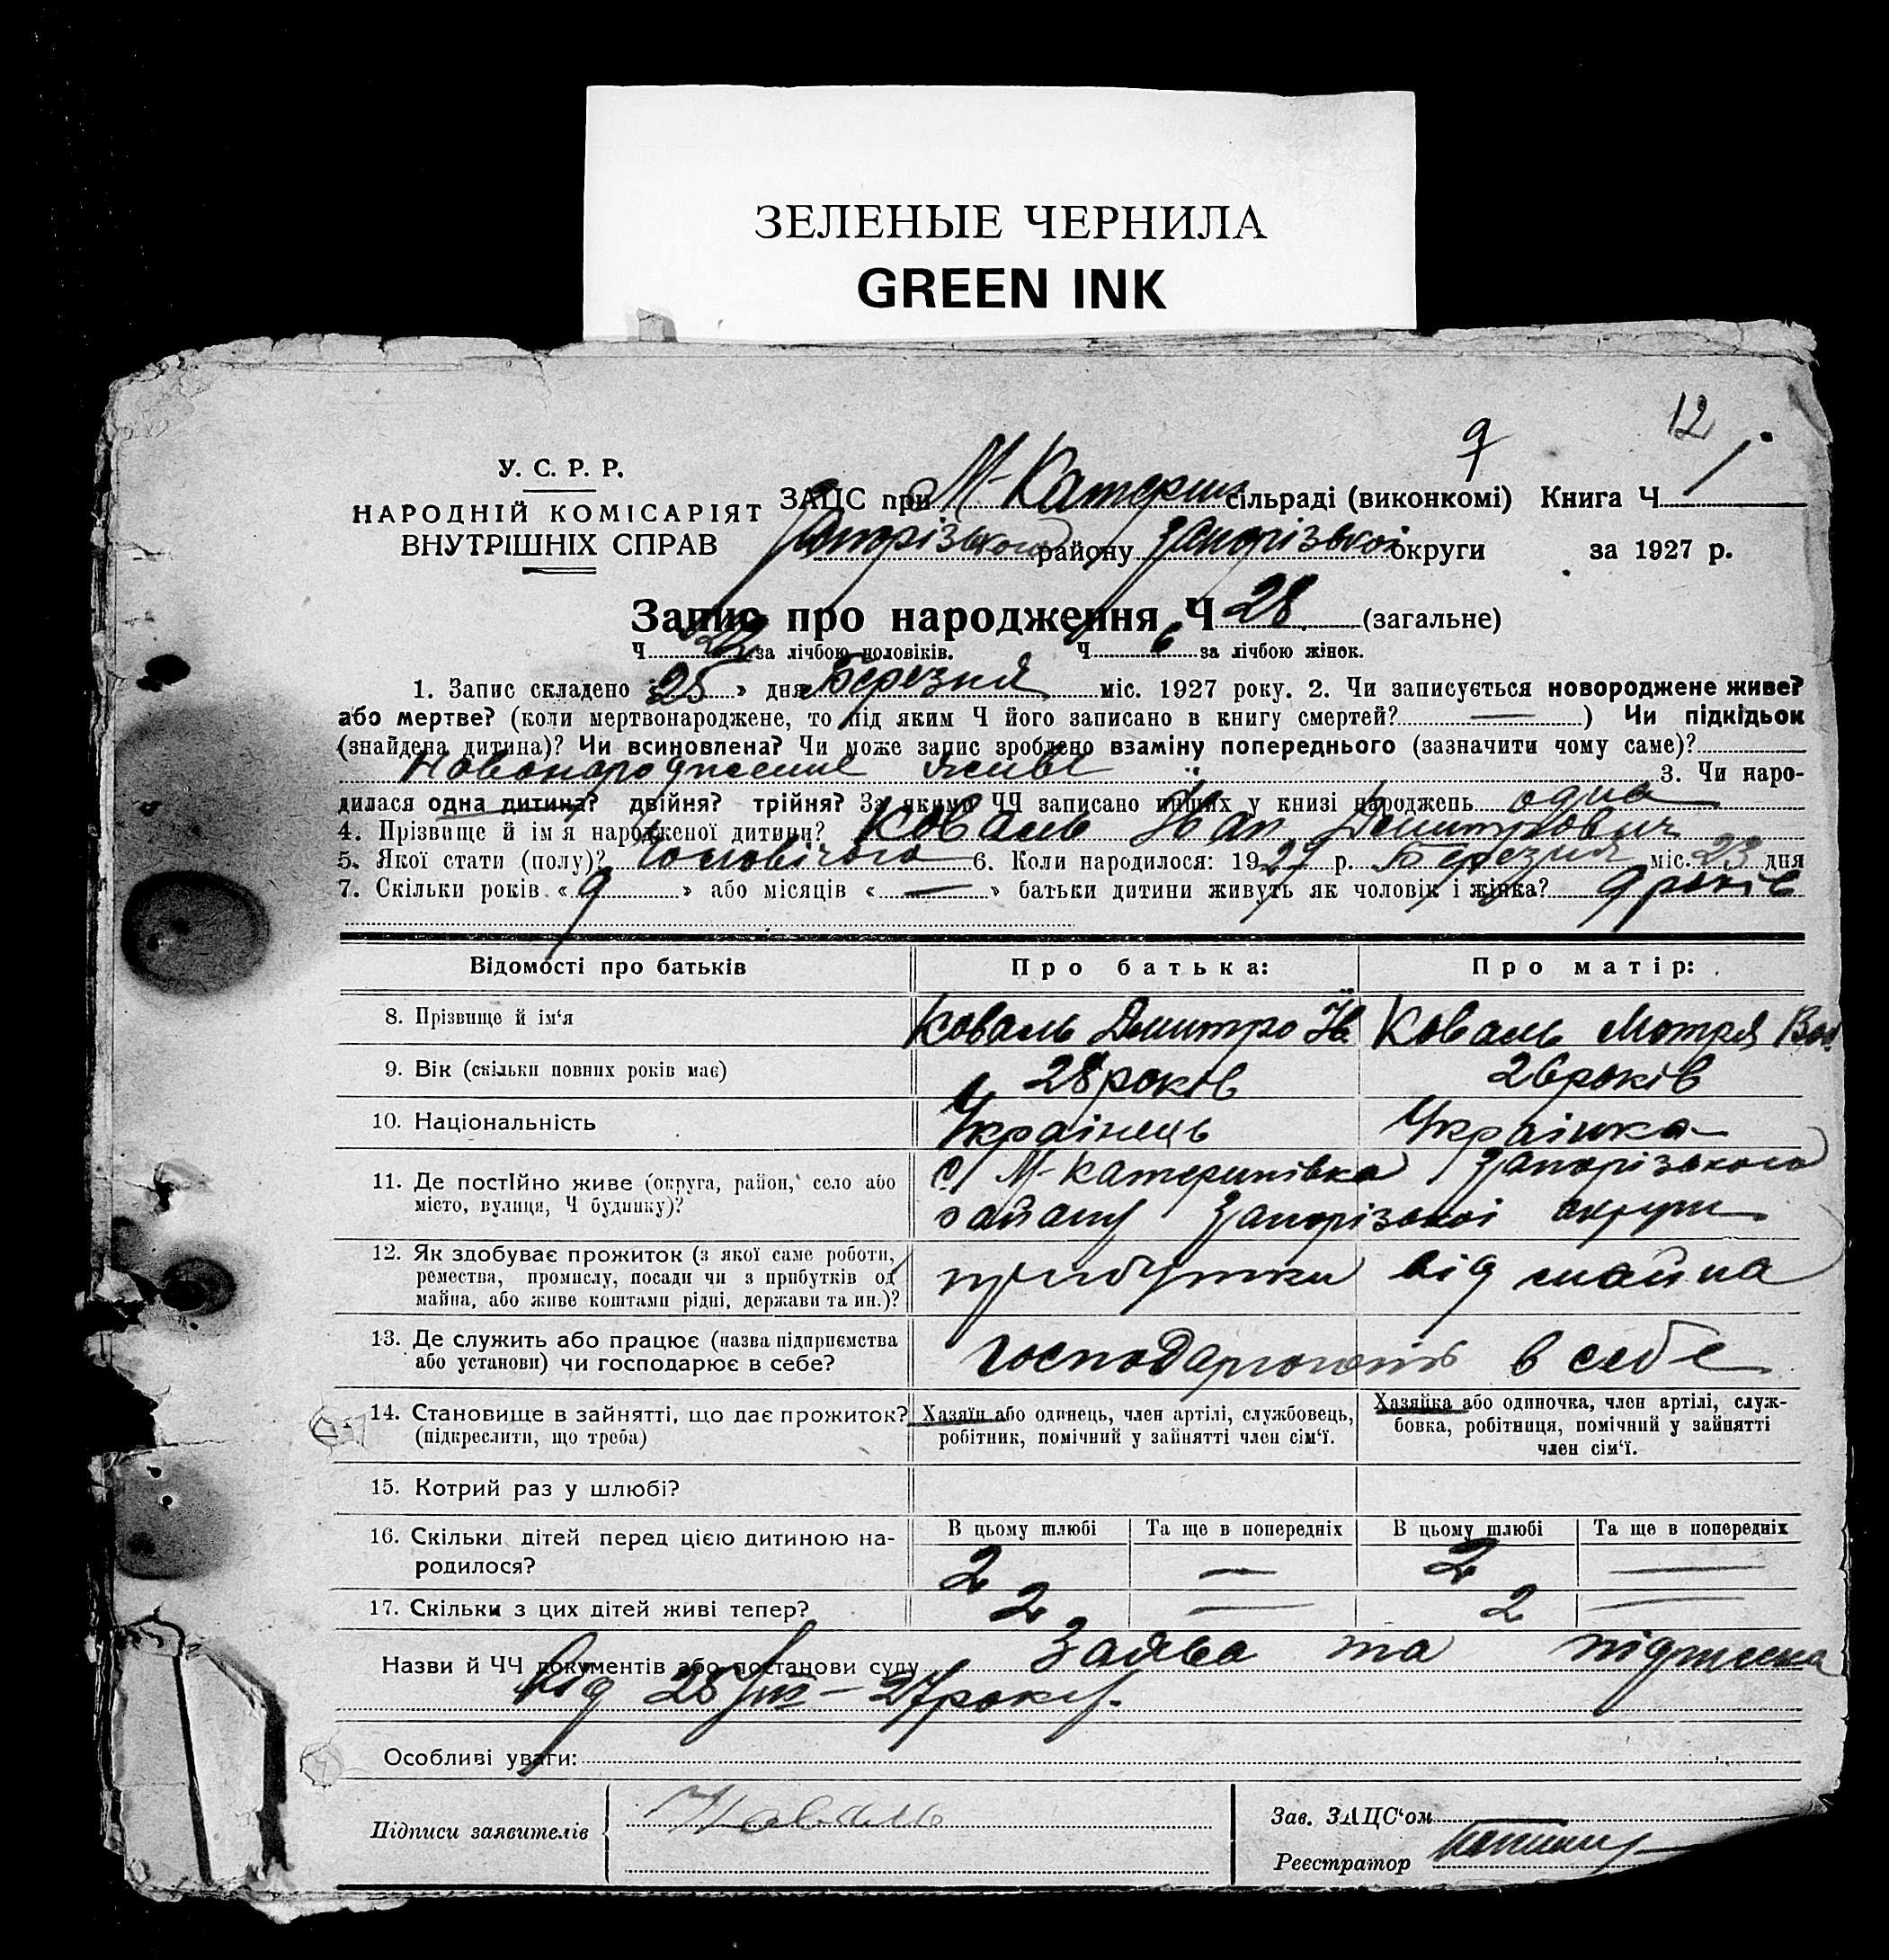 ЗЕЛЕНЫЕ ЧЕРНИЛА
GREEN INK
12
9
У. С. Р. Р.
НАРОДНІЙ КОМІСАРІЯТ
ВНУТРІШНІХ СПРАВ
ЗАЦС при М-Катерин сільраді (виконкомі) Книга Ч 1
Запорізького району Запорізької округи за 1927 р.
Запис про народження Ч 28 (загальне)
Ч 22 за лічбою чоловіків. Ч 6 за лічбою жінок.
1. Запис складено «25» дня Березня міс. 1927 року. 2. Чи записується новороджене живе?
або мертве? (коли мертвонароджене, то під яким Ч його записано в книгу смертей? — ) Чи підкідьок
(знайдена дитина)? Чи всиновлена? Чи може запис зроблено взаміну попереднього (зазначити чому саме)?
живе 3. Чи наро-
дилася одна дитина? двійня? трійня? За якими ЧЧ записано инших у книзі народжень одна
4. Прізвище й ім'я народженої дитини? Коваль Іван Дмитрович
5. Якої стати (полу)? Чоловічого 6. Коли народилося: 1927 р. Березня міс. 23 дня
7. Скільки років «9» або місяців « — » батьки дитини живуть як чоловік і жінка? 9 років
Відомості про батьків Про батька: Про матір:
8. Прізвище й ім'я Коваль Дмитро Ів. Коваль Мотря
9. Вік (скільки повних років має) 28 років 26 років
10. Національність Українець Українка
11. Де постійно живе (округа, район, село або
місто, вулиця, Ч будинку)?
с. М-Катеринівка Запорізького
району Запорізькоі округи
12. Як здобуває прожиток (з якої саме роботи,
ремества, промислу, посади чи з прибутків од
майна, або живе коштами рідні, держави та ин.)?
прибутки від майна
13. Де служить або працює (назва підприємства
або установи) чи господарює в себе?
господарюють в себе
14. Становище в зайнятті, що дає прожиток?
(підкреслити, що треба)
Хазяїн або одинець, член артілі, службовець,
робітник, помічний у зайнятті член сім'ї.
Хазяйка або одиночка, член артілі, служ-
бовка, робітниця, помічний у зайнятті
член сім'ї.
15. Котрий раз у шлюбі?
16. Скільки дітей перед цією дитиною на-
родилося?
В цьому шлюбі Та ще в попередніх В цьому шлюбі Та ще в попередніх
2 — 2 —
17. Скільки з цих дітей живі тепер? 2 — 2 —
Назви й ЧЧ документів або постанови суду Заява та підписка
Від 25/III – 27 року.
Особливі уваги:
Підписи заявителів Коваль
Зав. ЗАЦС'ом
Реєстратор